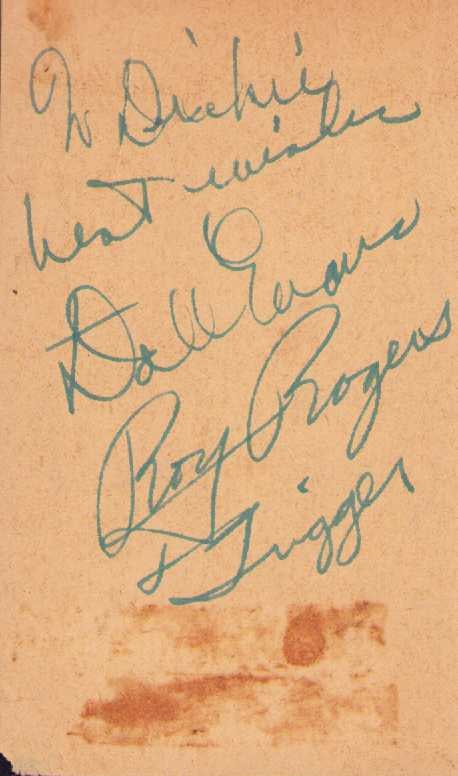 To Dickie
best wishes
Dale Evans
Roy Rogers
& Trigger